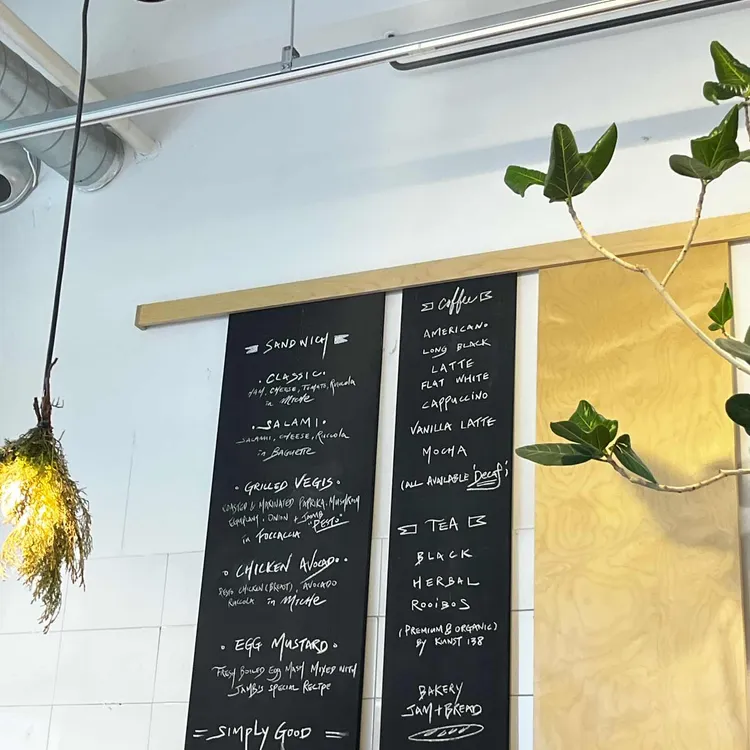 SANDWICH
CLASSIC
HAM, CHEESE, TOMATO, Rucola
in MICHE
SALAMI
SALAMI, CHEESE, Rucola
in BAGUETTE
GRILLED VEGIS
ROASTED & MARINATED PAPRIKA, MUSHROOM
EGGPLANT, ONION + JAMB'S
"PESTO"
in FOCACCIA
CHICKEN AVOCADO
CHICKEN (BREAST), AVOCADO
RUCOLA in MICHE
EGG MUSTARD
FRESH BOILED EGG MASH MIXED WITH
JAMB'S SPECIAL RECIPE
= SIMPLY GOOD =
Coffee
AMERICANO
LONG BLACK
LATTE
FLAT WHITE
CAPPUCCINO
VANILLA LATTE
MOCHA
(ALL AVAILABLE 'Decaf')
TEA
BLACK
HERBAL
ROOIBOS
(PREMIUM & ORGANIC)
BY KUNST 138
BAKERY
JAM + BREAD